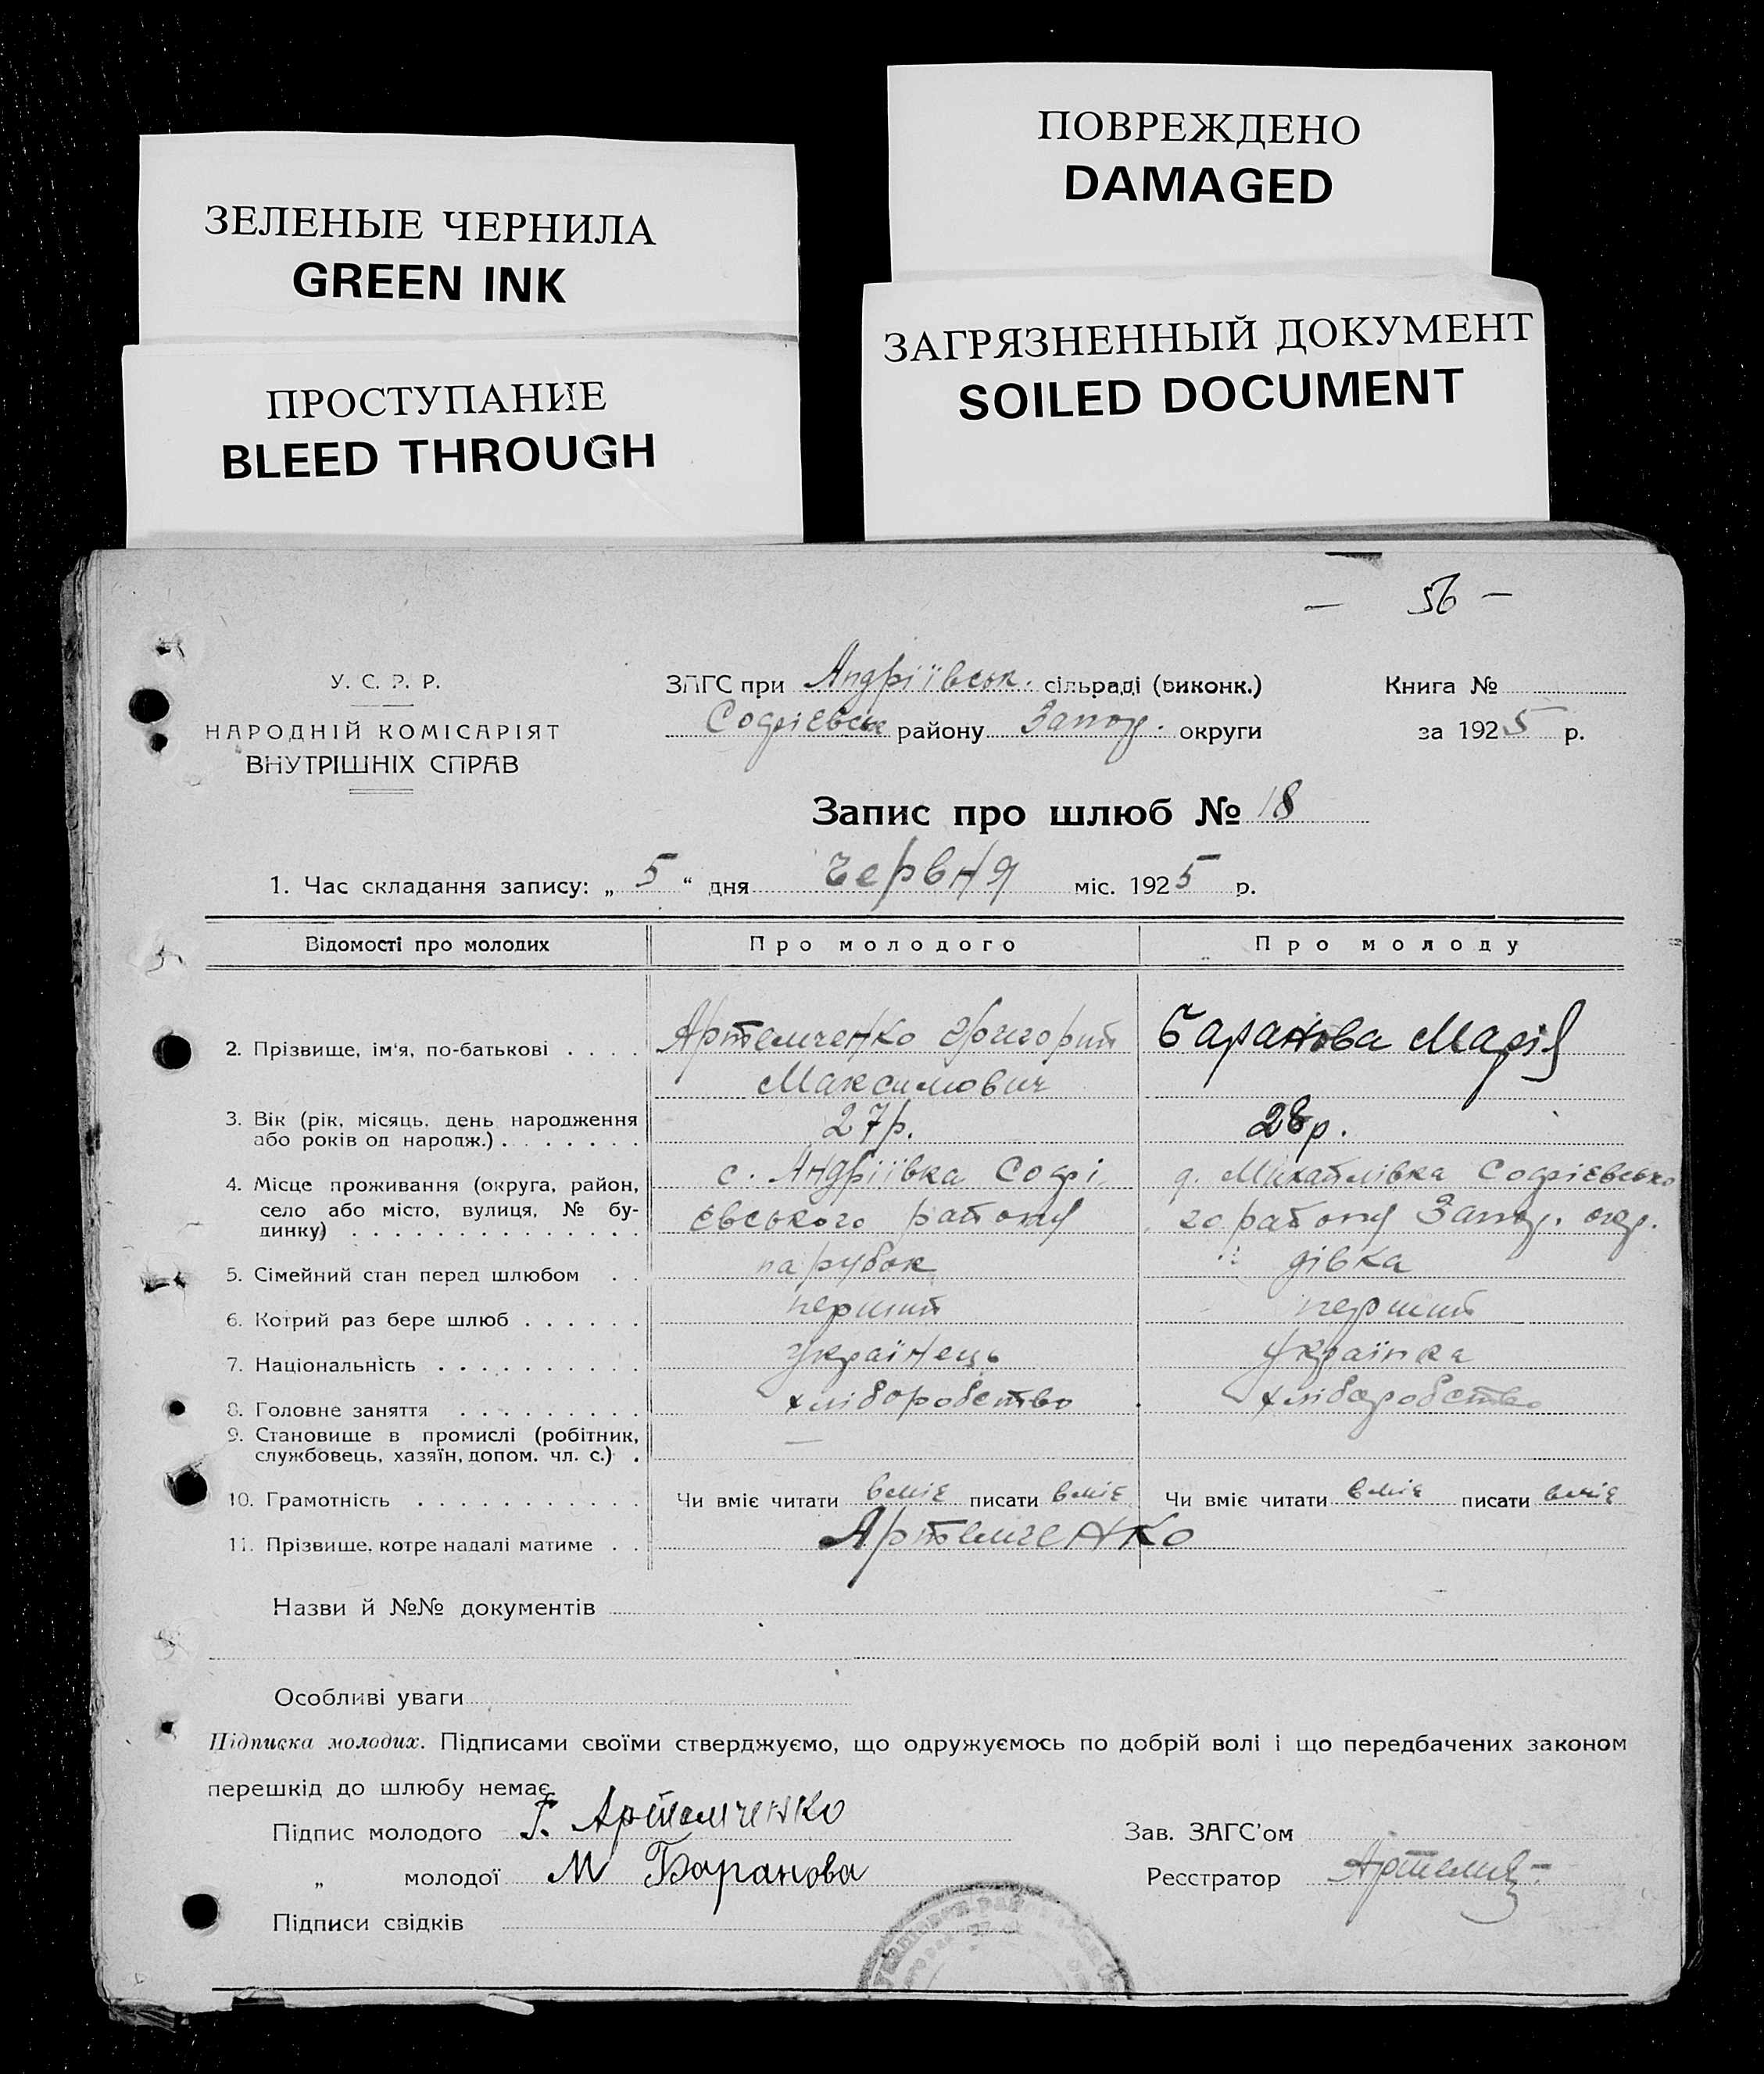 ПОВРЕЖДЕНО
DAMAGED
ЗЕЛЕНЫЕ ЧЕРНИЛА
GREEN INK
ЗАГРЯЗНЕННЫЙ ДОКУМЕНТ
SOILED DOCUMENT
ПРОСТУПАНИЕ
BLEED THROUGH
— 56 —
У. С. Р. Р.
НАРОДНІЙ КОМІСАРІЯТ
ВНУТРІШНІХ СПРАВ
ЗАГС при Андріївськ. сільраді (виконк.)
Софієвськ району Запор. округи
Книга №
за 1925 р.
Запис про шлюб № 18
1. Час складання запису: „ 5 “ дня червня міс. 1925 р.
Відомості про молодих Про молодого Про молоду
2. Прізвище, ім'я, по-батькові . . . . Артемченко Григорий Баранова Марія
Максимович
3. Вік (рік, місяць, день народження 27р. 28р.
або років од народж.) . . . . . . .
4. Місце проживання (округа, район, с. Андріївка Софі д. Михайлівка Софієвсько
село або місто, вулиця, № бу- євського району го району Запор. окр.
динку) . . . . . . . . . . . . . .
5. Сімейний стан перед шлюбом . . парубок дівка
6. Котрий раз бере шлюб . . . . . . перший перший
7. Національність . . . . . . . . . . Українець Українка
8. Головне заняття . . . . . . . . . хліборобство хліборобство
9. Становище в промислі (робітник, —
службовець, хазяїн, допом. чл. с.) .
10. Грамотність . . . . . . . . . . . Чи вміє читати вміє писати вміє Чи вміє читати вміє писати вміє
11. Прізвище, котре надалі матиме . . Артемченко
Назви й №№ документів
Особливі уваги
Підписка молодих. Підписами своїми стверджуємо, що одружуємось по добрій волі і що передбачених законом
перешкід до шлюбу немає.
Підпис молодого Г. Артемченко Зав. ЗАГС'ом
„ молодої М Баранова Реєстратор
Підписи свідків